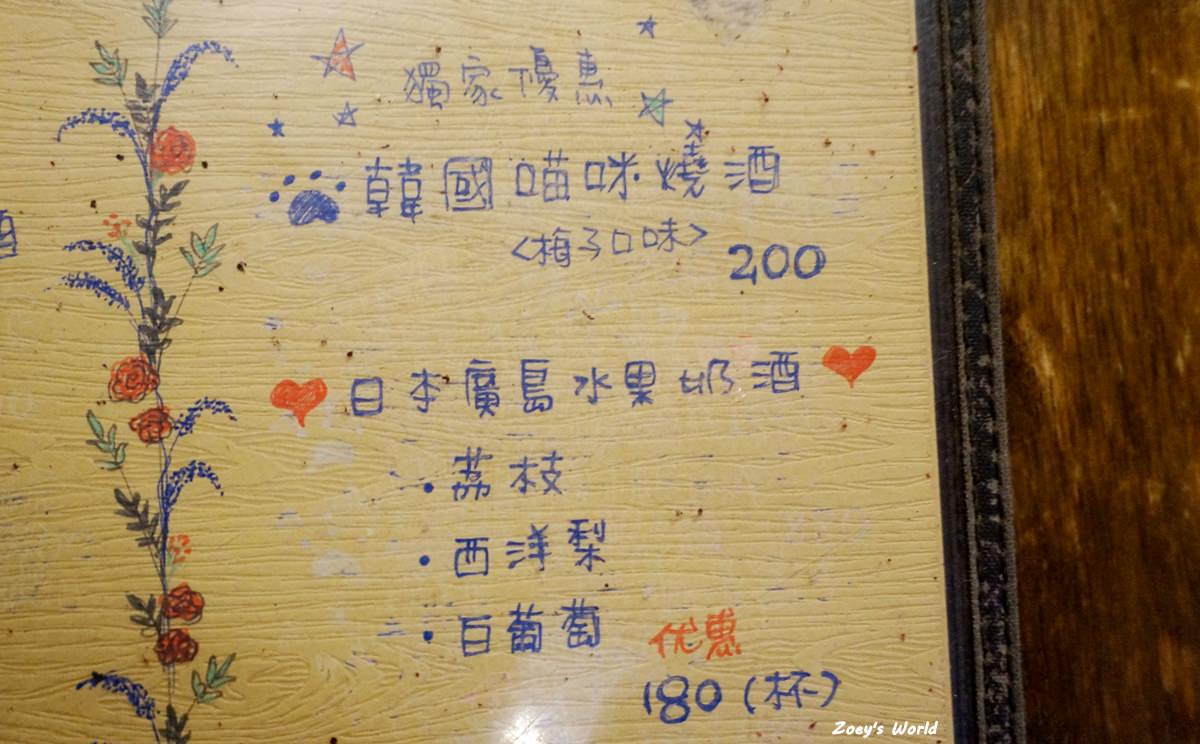 獨家優惠
韓國喵咪燒酒
<梅子口味>
200
日本廣島水果奶酒
·荔枝
·西洋梨
·白葡萄
优惠
180(杯)
酒
Zoey's World